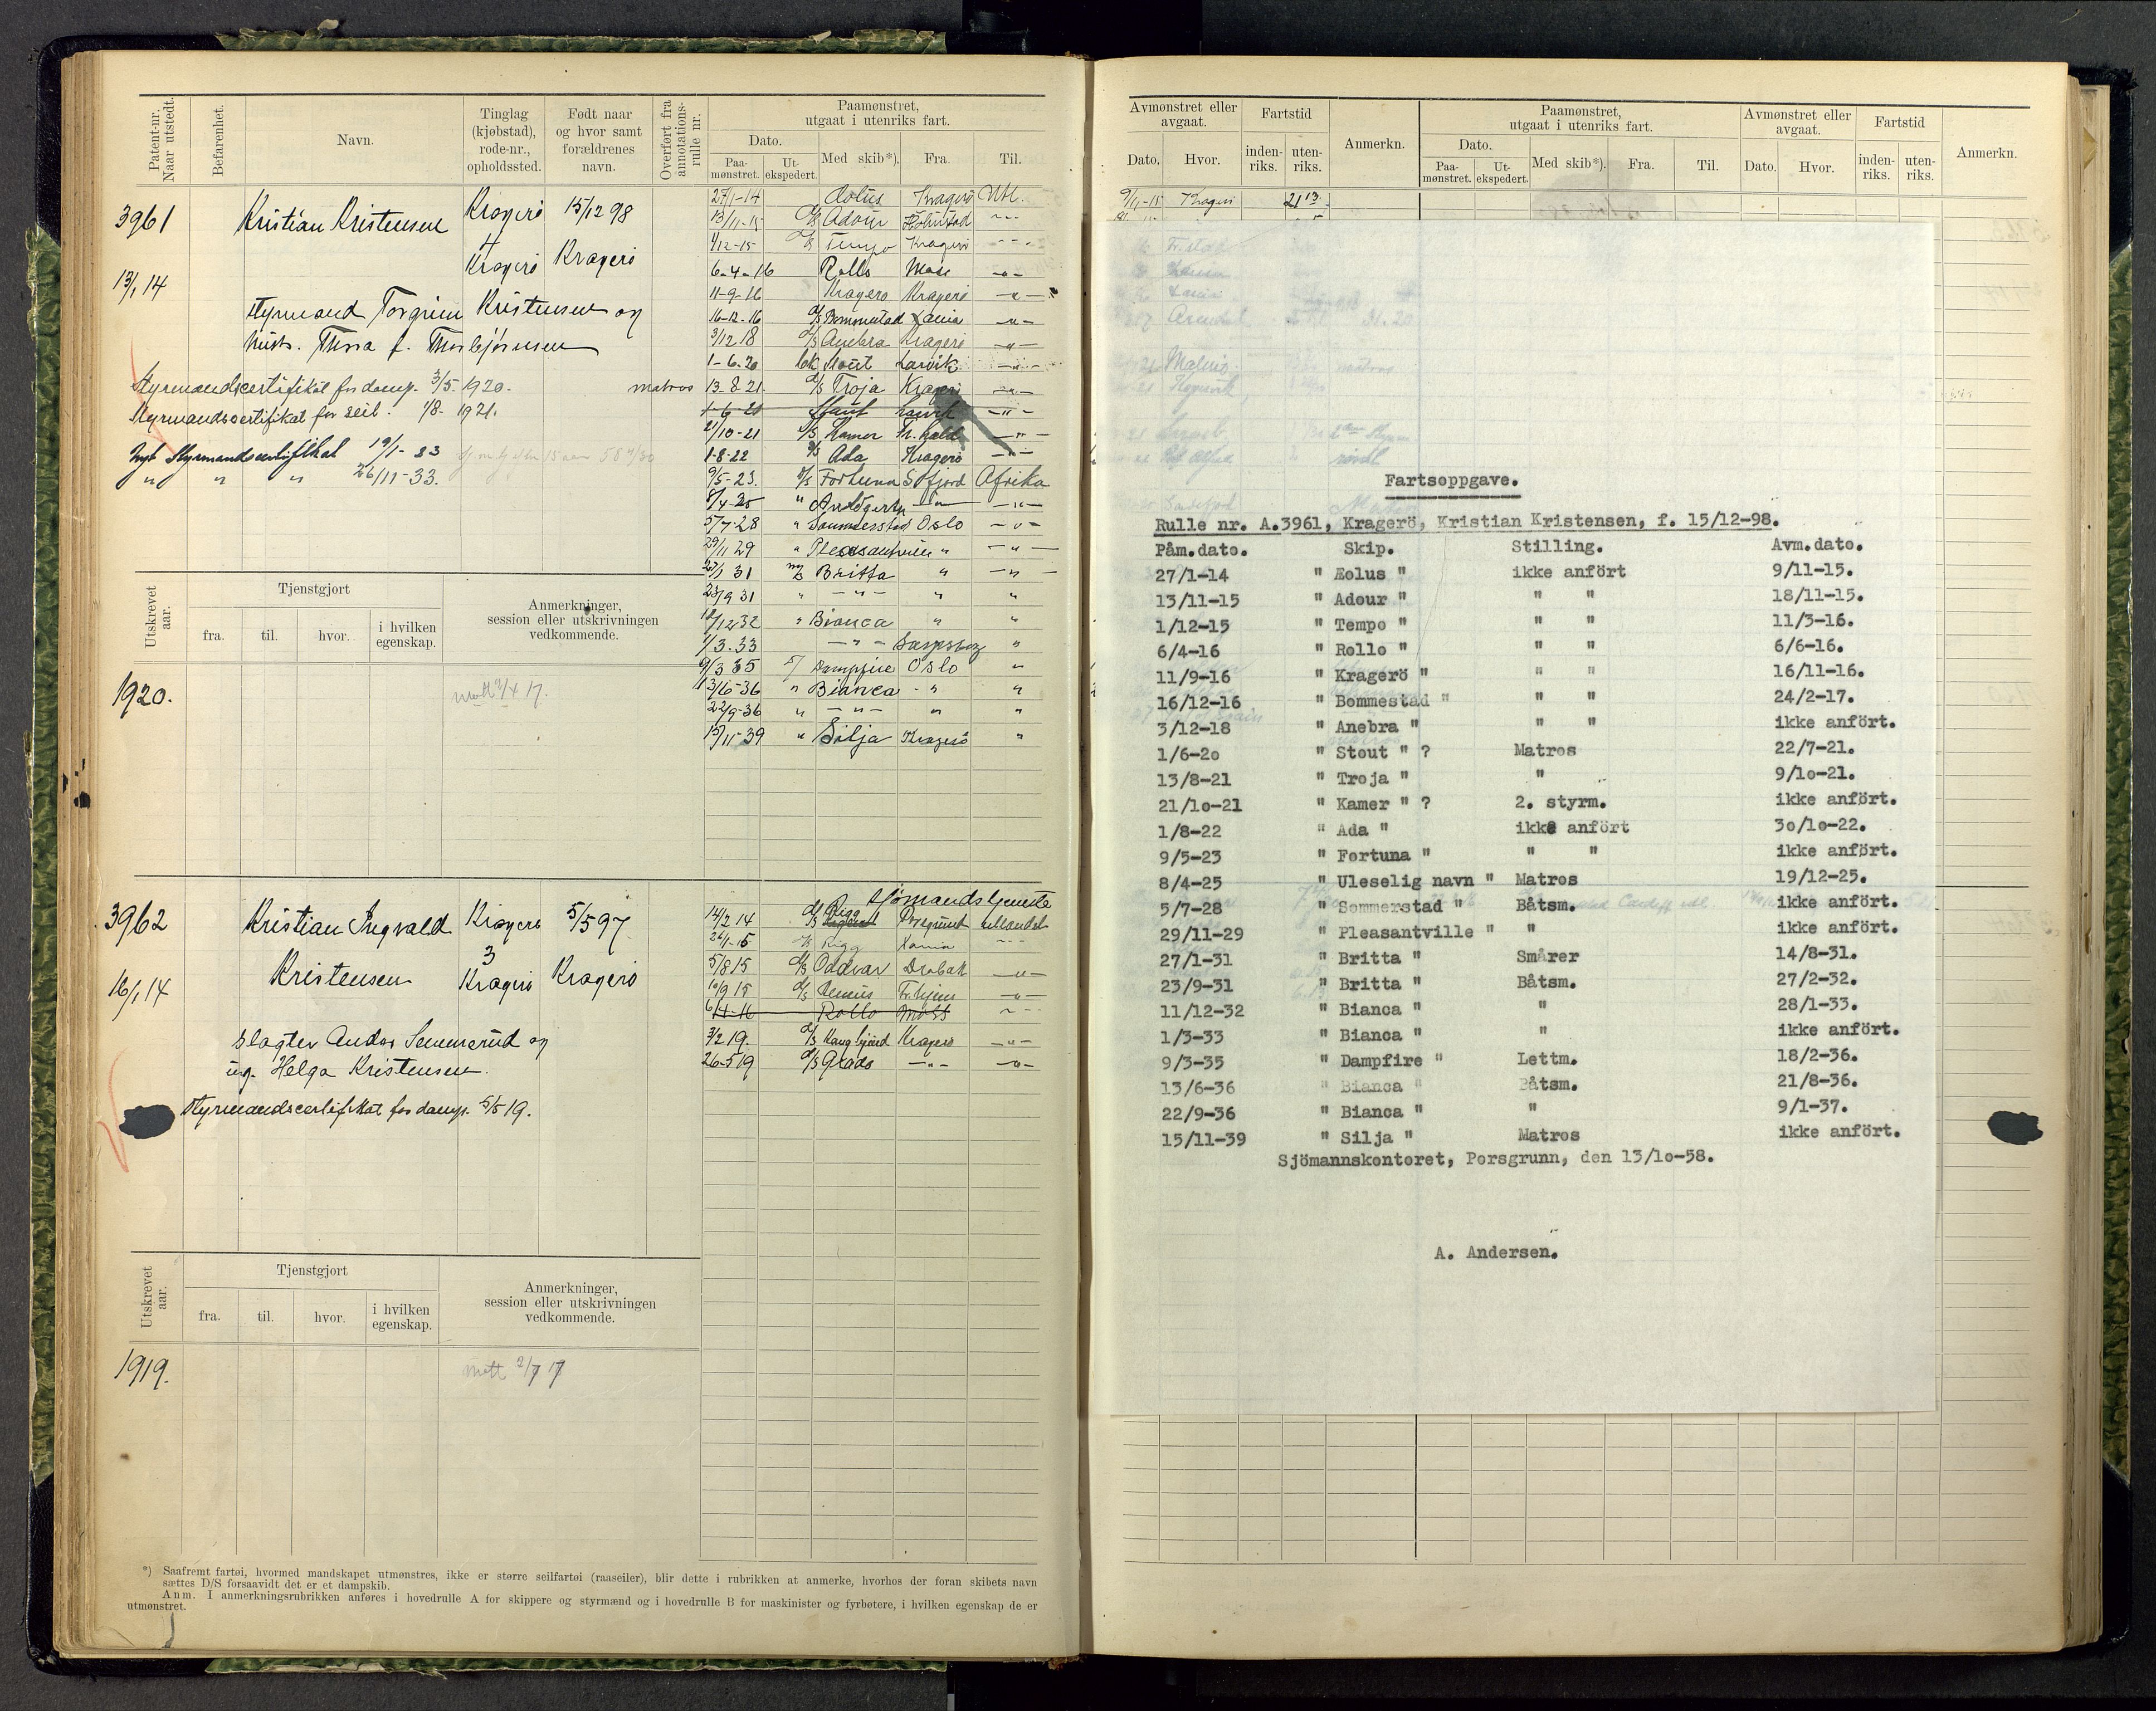 Patent-nr. Naar utstedt.
Befarenhet.
Navn.
Tinglag (kjøbstad), rode-nr., opholdssted.
Født naar og hvor samt forældrenes navn.
Overført fra annotations-rulle nr.
Paamønstret, utgaat i utenriks fart.
Dato.
Paa-mønstret.
Ut-ekspedert.
Med skib*).
Fra.
Til.
3961
Kristian Kristensen
Kragerö
15/12 98
4
Kragerö
Kragerö
13/1 14
Styrmand Torgrim Kristensen og
hust. Thora f. Thorbjörnsen
Styrmandscertifikat for damp. 3/5 1920.
matros
Styrmandscertifikat for seil. 1/8- 1921.
Nyt Styrmandscertifikat 19/1- 23
" " " 26/11-33.
27/1-14 Æolus Kragerö Utl.
13/11-15 d/s Adour Halmstad -"-
1/12-15 d/s Tempo Kragerö -"-
6-4-16 Rollo Moss -"-
11-9-16 Kragerö Kragerö -"-
16-12-16 d/s Bommestad -"-
3/12 18 d/s Anebra Kragerö -"-
1-6-20 Larvik -"-
13-8-21. d/s Troja Kragerö -"-
1-6-20 Larvik -"-
21/10-21 d/s Kamer Fr. hald -"-
1-8-22 d/s Ada Kragerö -"-
9/5-23. d/s Fortuna S.fjord Afrika
8/4-25 " -"- -"-
5/7-28 " Sommerstad Oslo -"-
29/11 29 " Pleasantville " -"-
27/1 31 m/s Britta " -"-
23/9 31 " -"- " "
11/12 32 " Bianca " "
1/3.33 -"- Sarpsborg "
9/3 35 Dampfire Oslo "
13/6-36 " Bianca -" "
22/9-36 " -"- " "
15/11-39 " Silja Kragerö "
Utskrevet aar.
Tjenstgjort
fra.
til.
hvor.
i hvilken egenskap.
Anmerkninger, session eller utskrivningen vedkommende.
1920.
3962
Kristian Ingvald
Kragerö
5/5 97
Kristensen
3
Kragerö
Kragerö
16/1 14
Slagter Anders Semmerud og
ug. Helga Kristensen.
Styrmandscertifikat for damp. 5/5 19.
Sjömandstjeneste
14/2 14 d/s Rigg Porsgrund utlandet
26/1-15 d/s Rigg -"-
5/8 15 d/s Oddvar Dröbak -"-
10/9 15 d/s Venus -"-
6/4-16 Rollo Moss -"-
3/2 19. d/s Kragerö -"-
26-5 19 d/s -"- -"-
Utskrevet aar.
Tjenstgjort
fra.
til.
hvor.
i hvilken egenskap.
Anmerkninger, session eller utskrivningen vedkommende.
1919.
*) Saafremt fartøi, hvormed mandskapet utmønstres, ikke er større seilfartøi (raaseiler), blir dette i rubrikken at anmerke, hvorhos der foran skibets navn
sættes D/S forsaavidt det er et dampskib.
Anm. I anmerkningsrubrikken anføres i hovedrulle A for skippere og styrmænd og i hovedrulle B for maskinister og fyrbøtere, i hvilken egenskap de er
utmønstret.
Avmønstret eller avgaat.
Dato.
Hvor.
Fartstid
inden-riks.
uten-riks.
Anmerkn.
Paamønstret, utgaat i utenriks fart.
Dato.
Paa-mønstret.
Ut-ekspedert.
Med skib*).
Fra.
Til.
Avmønstret eller avgaat.
Dato.
Hvor.
Fartstid
inden-riks.
uten-riks.
Anmerkn.
9/11-15 Kragerö 21 13
Fartsoppgave.
Rulle nr. A.3961, Kragerö, Kristian Kristensen, f. 15/12-98.
Påm.dato. Skip. Stilling. Avm.dato.
27/1-14 " Æolus " ikke anfört 9/11-15.
13/11-15 " Adour " " " 18/11-15.
1/12-15 " Tempo " " " 11/3-16.
6/4-16 " Rollo " " " 6/6-16.
11/9-16 " Kragerö " " " 16/11-16.
16/12-16 " Bommestad " " " 24/2-17.
3/12-18 " Anebra " " " ikke anfört.
1/6-20 " Stout " ? Matros 22/7-21.
13/8-21 " Troja " " 9/10-21.
21/10-21 " Kamer " ? 2. styrm. ikke anfört.
1/8-22 " Ada " ikke anfört 30/10-22.
9/5-23 " Fortuna " " " ikke anfört.
8/4-25 " Uleselig navn " Matros 19/12-25.
5/7-28 " Sommerstad " Båtsm. ikke anfört.
29/11-29 " Pleasantville " " ikke anfört.
27/1-31 " Britta " Smårer 14/8-31.
23/9-31 " Britta " Båtsm. 27/2-32.
11/12-32 " Bianca " " 28/1-33.
1/3-33 " Bianca " " ikke anfört.
9/3-35 " Dampfire " Lettm. 18/2-36.
13/6-36 " Bianca " Båtsm. 21/8-36.
22/9-36 " Bianca " " 9/1-37.
15/11-39 " Silja " Matros ikke anfört.
Sjömannskontoret, Porsgrunn, den 13/10-58.
A. Andersen.